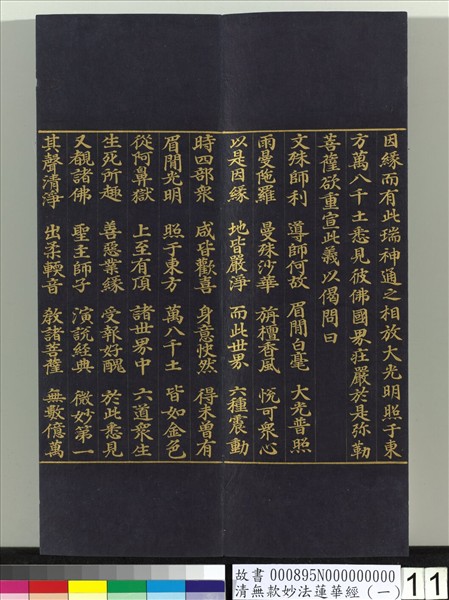 因緣而有此瑞神通之相放大光明照于東
方萬八千土悉見彼佛國界莊嚴於是弥勒
菩薩欲重宣此義以偈問曰
文殊師利　導師何故　眉間白毫　大光普照
雨曼陁羅　曼殊沙華　旃檀香風　悅可衆心
以是因緣　地皆嚴淨　而此世界　六種震動
時四部衆　咸皆歡喜　身意快然　得未曾有
眉間光明　照于東方　萬八千土　皆如金色
從阿鼻獄　上至有頂　諸世界中　六道衆生
生死所趣　善惡業緣　受報好醜　於此悉見
又覩諸佛　聖主師子　演說經典　微妙第一
其聲清淨　出柔輭音　教諸菩薩　無數億萬
故書 000895N000000000
清無款妙法蓮華經（一）
11